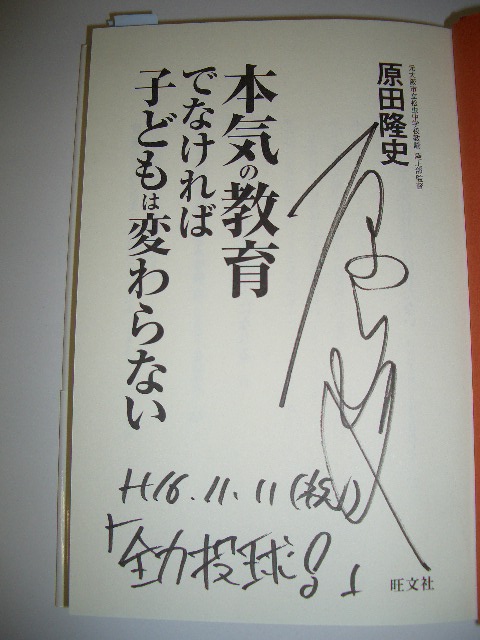 元大阪市立松虫中学校教諭・陸上部監督
原田隆史
本気の教育
でなければ
子どもは変わらない
H16.11.11(祝)
「全力投球!!」
旺文社